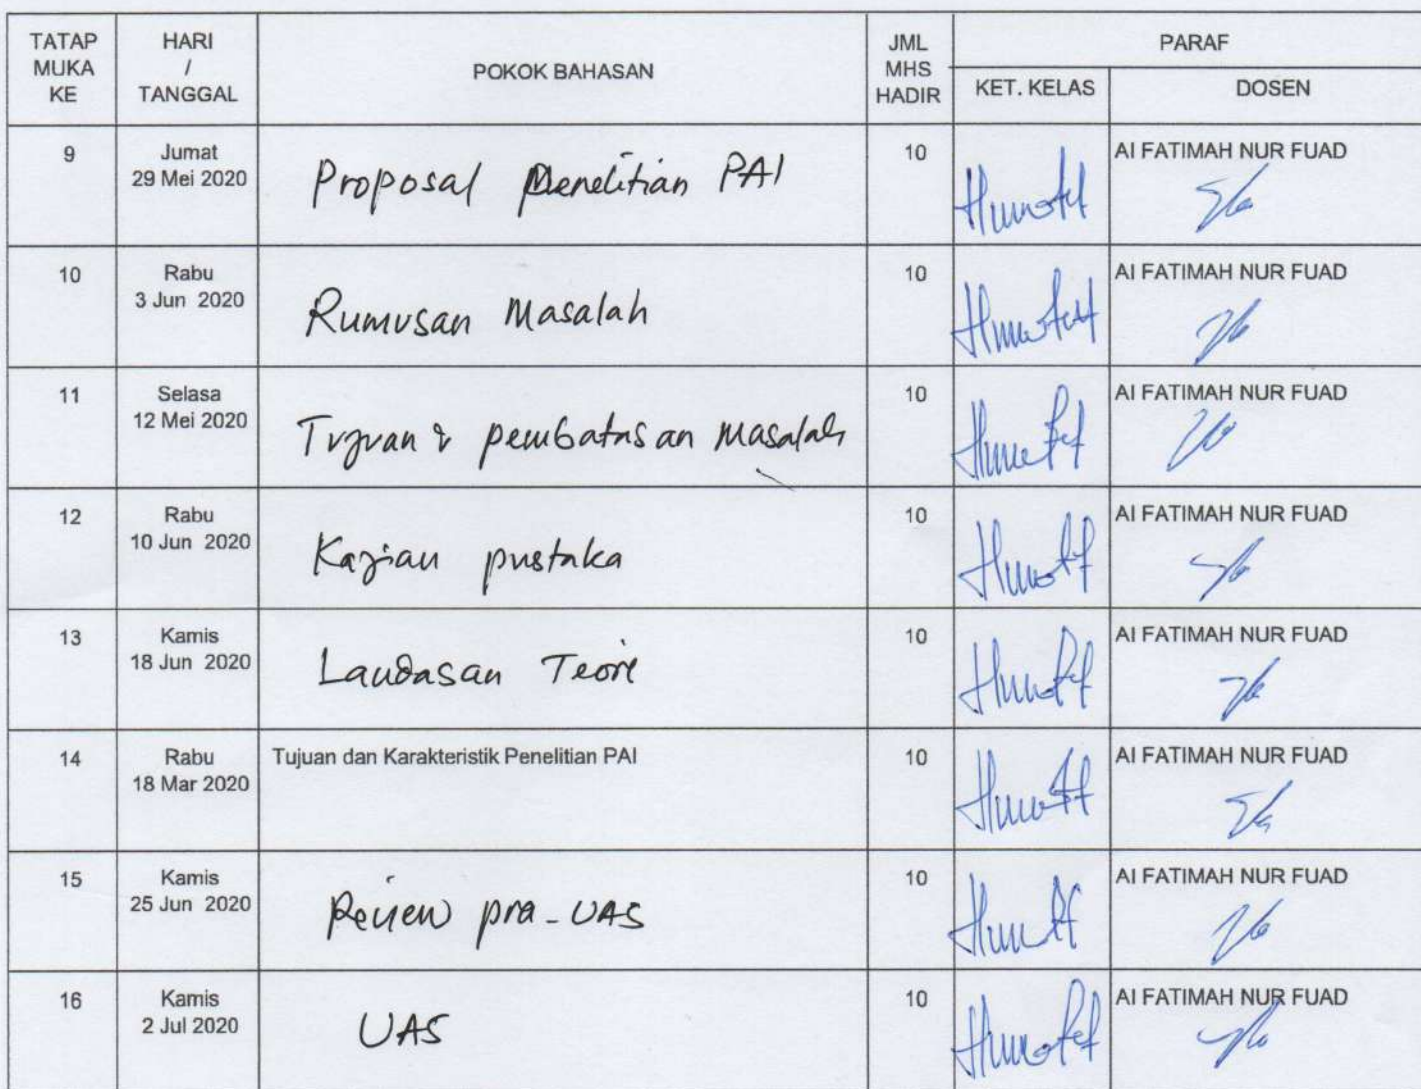 TATAP MUKA KE
HARI / TANGGAL
POKOK BAHASAN
JML MHS HADIR
PARAF
KET. KELAS
DOSEN
9
Jumat
29 Mei 2020
Proposal Penelitian PAI
10
AI FATIMAH NUR FUAD
10
Rabu
3 Jun 2020
Rumusan Masalah
10
AI FATIMAH NUR FUAD
11
Selasa
12 Mei 2020
Tujuan & pembatasan masalah
10
AI FATIMAH NUR FUAD
12
Rabu
10 Jun 2020
Kajian pustaka
10
AI FATIMAH NUR FUAD
13
Kamis
18 Jun 2020
Landasan Teori
10
AI FATIMAH NUR FUAD
14
Rabu
18 Mar 2020
Tujuan dan Karakteristik Penelitian PAI
10
AI FATIMAH NUR FUAD
15
Kamis
25 Jun 2020
Review pra-UAS
10
AI FATIMAH NUR FUAD
16
Kamis
2 Jul 2020
UAS
10
AI FATIMAH NUR FUAD